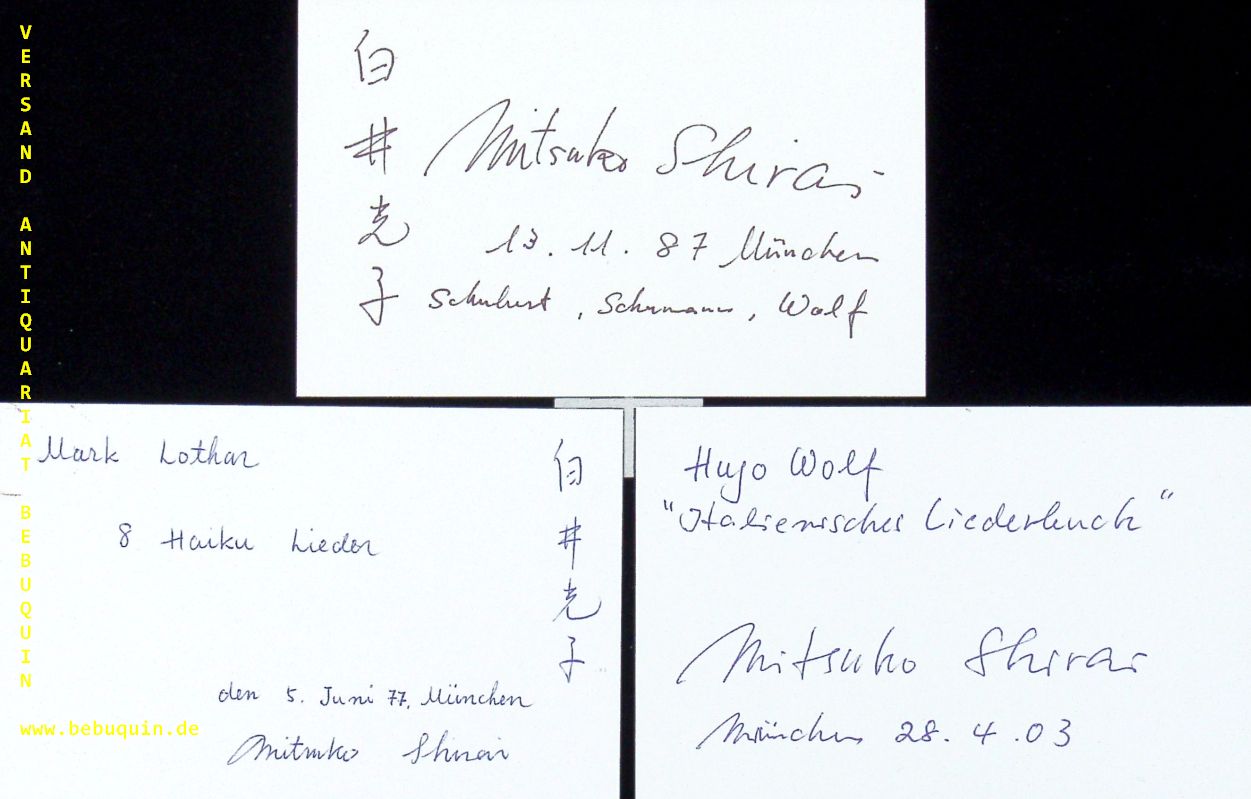 VERSAND ANTIQUARIAT BEBUQUIN
www.bebuquin.de
白井光子
Mitsuko Shirai
13.11.87 München
Schubert, Schumann, Wolf
Mark Lothar
8 Haiku Lieder
白井光子
den 5. Juni 77, München
Mitsuko Shirai
Hugo Wolf
"Italienisches Liederbuch"
Mitsuko Shirai
München 28.4.03